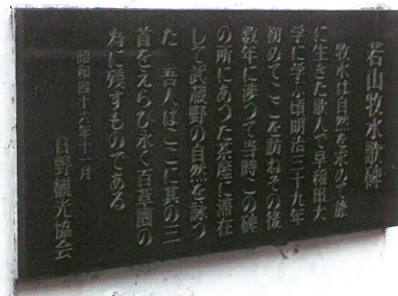 若山牧水歌碑
牧水は自然を求めて旅
に生きた歌人で早稲田大
学に学ぶ頃明治三十九年
初めてここを訪ねその後
数年に渉つて当時この碑
の所にあつた茶屋に滞在
して武蔵野の自然を詠つ
た 吾人はここに其の三
首をえらび永く百草園の
為に残すものである
昭和四十六年十一月
日野観光協会